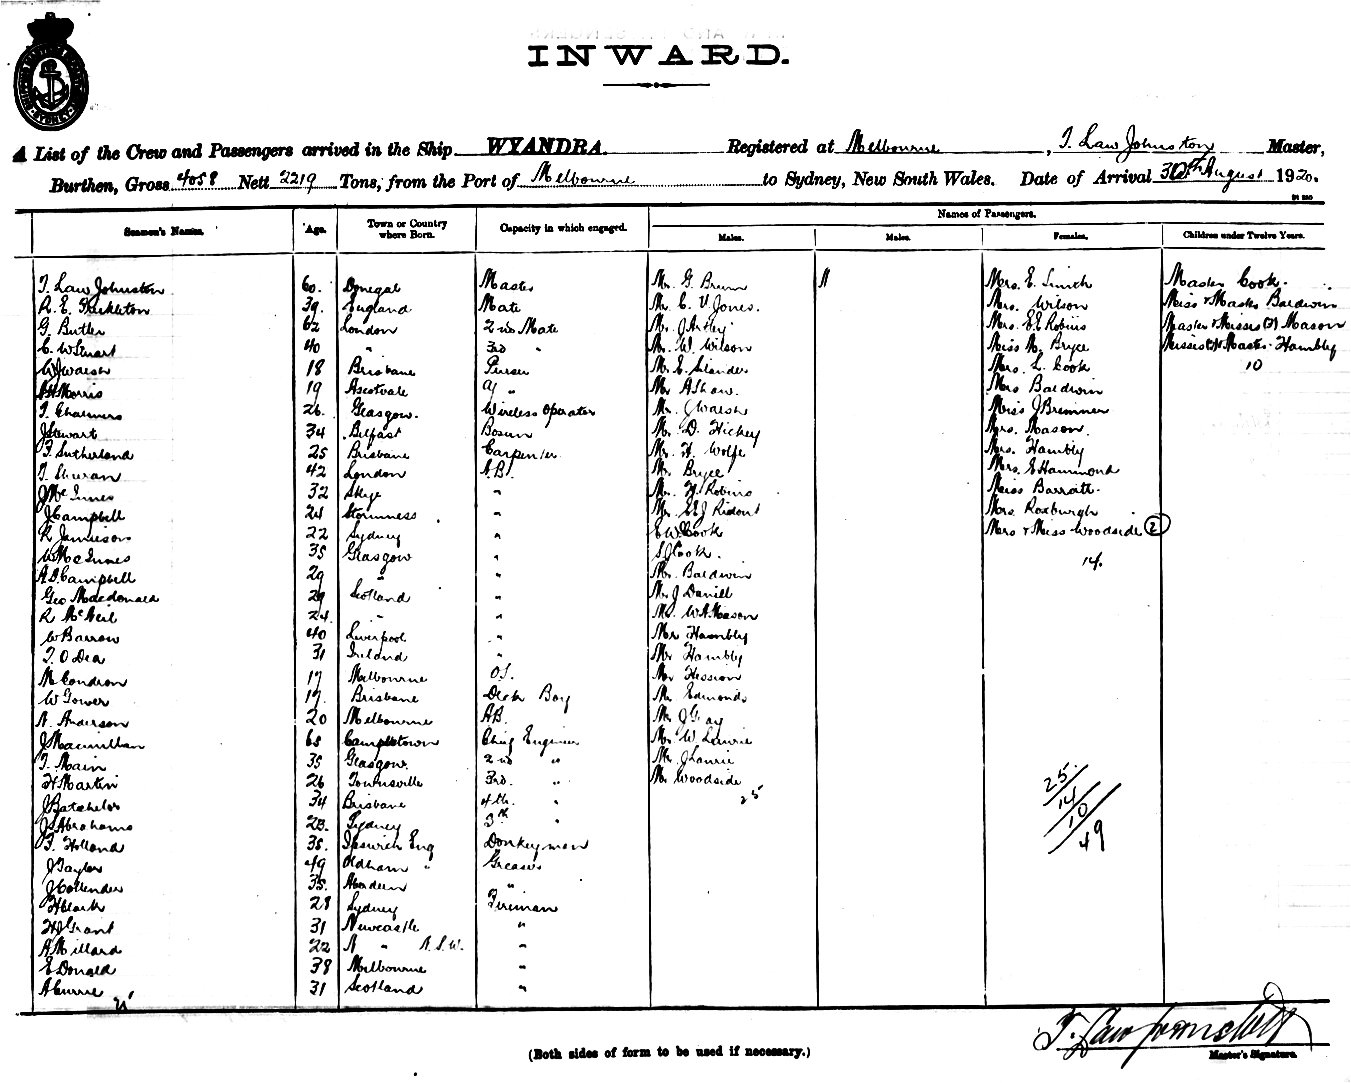 INWARD.
A List of the Crew and Passengers arrived in the Ship WYANDRA Registered at Melbourne, T. Law Johnston Master,
Burthen, Gross 4058 Nett 2219 Tons, from the Port of Melbourne to Sydney, New South Wales. Date of Arrival 30th August 1920.
Names of Passengers.
Seamen's Names. Age. Town or Country where Born. Capacity in which engaged. Males. Males. Females. Children under Twelve Years.
T. Law Johnston 60. Donegal Master Mr. G. Mrs. E. Master Cook.
R. E. 39. England Mate Mr C. V Jones. Mrs. Wilson Miss & Master Baldwin
G. Butler 62 London 2nd Mate Mr. J Mrs. EE Robins Master & Misses (3) Mason
C. W Stuart 40 " 3rd " Mr. W. Wilson Miss M. Bryce Misses & Master Hambly
W J Walsh 18 Brisbane Purser Mr. E. Mrs. L. Cook 10
Morris 19 Ascotvale a/ " Mr A Shaw. Mrs Baldwin
T. Chalmers 26. Glasgow. Wireless Operator Mr. J Walsh Miss J Bremner
J Stewart 34 Belfast Bosun Mr. D. Hickey Mrs. Mason.
F. Sutherland 25 Brisbane Carpenter Mr. H. Wolfe Mrs. Hambly
T. 42 London A.B. Mr Bryce Mrs. E Hammond
J Mc Innes 32 Skye " Mr. H Robins Miss Barratt.
J Campbell 24 Stromness " Mr. EEJ Ridout Mrs Roxburgh
R Jamieson 22 Sydney " E W Cook Mrs & Miss Woodside (2)
W Mc Innes 35 Glasgow " S J Cook. 14.
A D Campbell 29 " " Mr. Baldwin
Geo Macdonald 29 Scotland " Mr. J Danill
R McNeil 24. " " Mr. W A Mason
W Barrow 40 Liverpool " Mr Hambly
T. O Dea 31 Ireland " Mr Hambly
M Condron 17 Melbourne O.S. Mr Hession
W Gower 17. Brisbane Deck Boy Mr Edmonds
N. Anderson 20 Melbourne AB. Mr J Gray
J Macmillan 65 Campbltown Chief Engineer Mr. W. Lawrie
T. Main 35 Glasgow. 2nd " Mr J Laurie
H Martin 26 Townsville 3rd. " Mr Woodside
J Batchelor 34 Brisbane 4th. " 25
J S Abrahams 23. Sydney 5th "
F. Holland 35. Ipswich Eng Donkeyman
J Taylor 49 Oldham " Greaser
J Collender 35. Aberdeen "
H Clark 28 Sydney Fireman
H J Grant 31 Newcastle "
A Millard 22 N " N.S.W. "
E Donald 38 Melbourne "
A Currie 31 Scotland "
25.
14
10
49
T. Law Johnston
Master's Signature.
(Both sides of form to be used if necessary.)